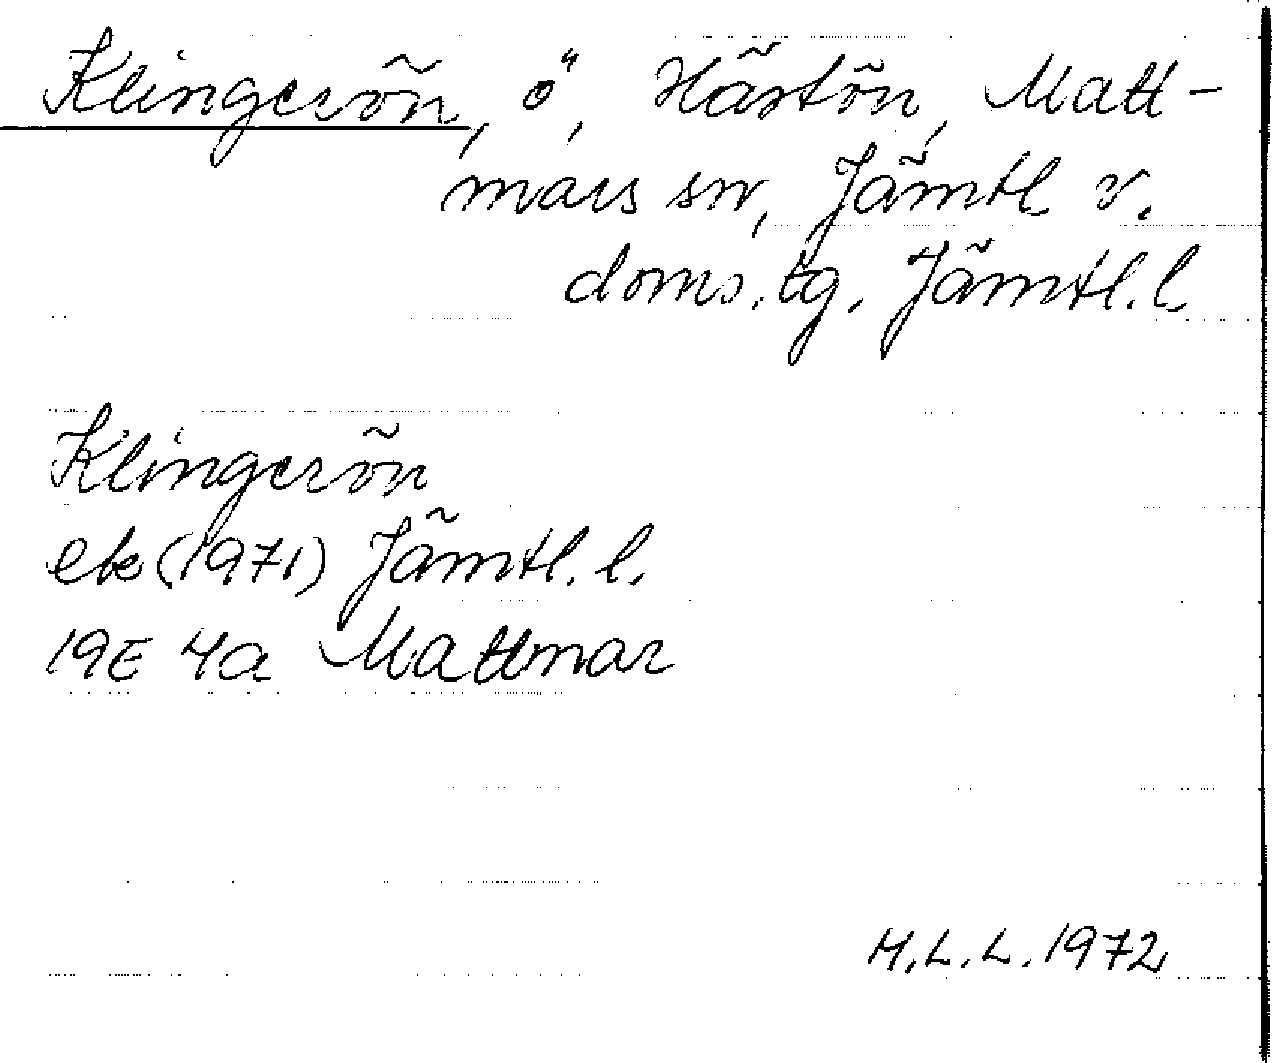 Klingerön, ö, Hästön, Matt-
mars sn, Jämtl v.
doms.tg. Jämtl. l.
Klingerön
ek (1971) Jämtl. l.
19E 4a Mattmar
M.L.L. 1972